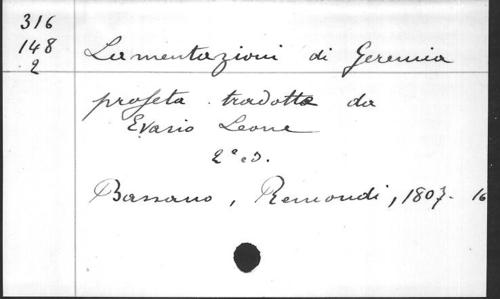 316
148
2
Lamentazioni di Geremia
profeta tradotte da
Evasio Leone
2ª ed.
Bassano, Remondi, 1807. 16